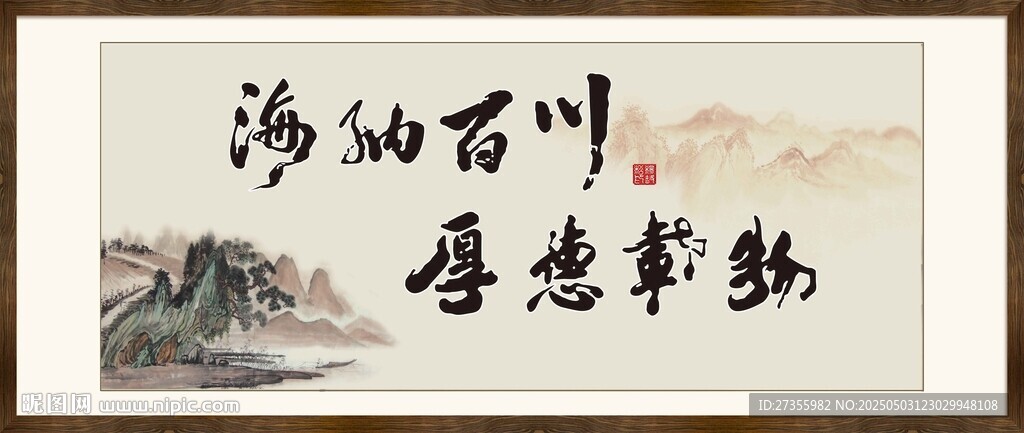 海纳百川
厚德载物
昵图网 www.nipic.com
ID:27355982 NO:20250503123029948108